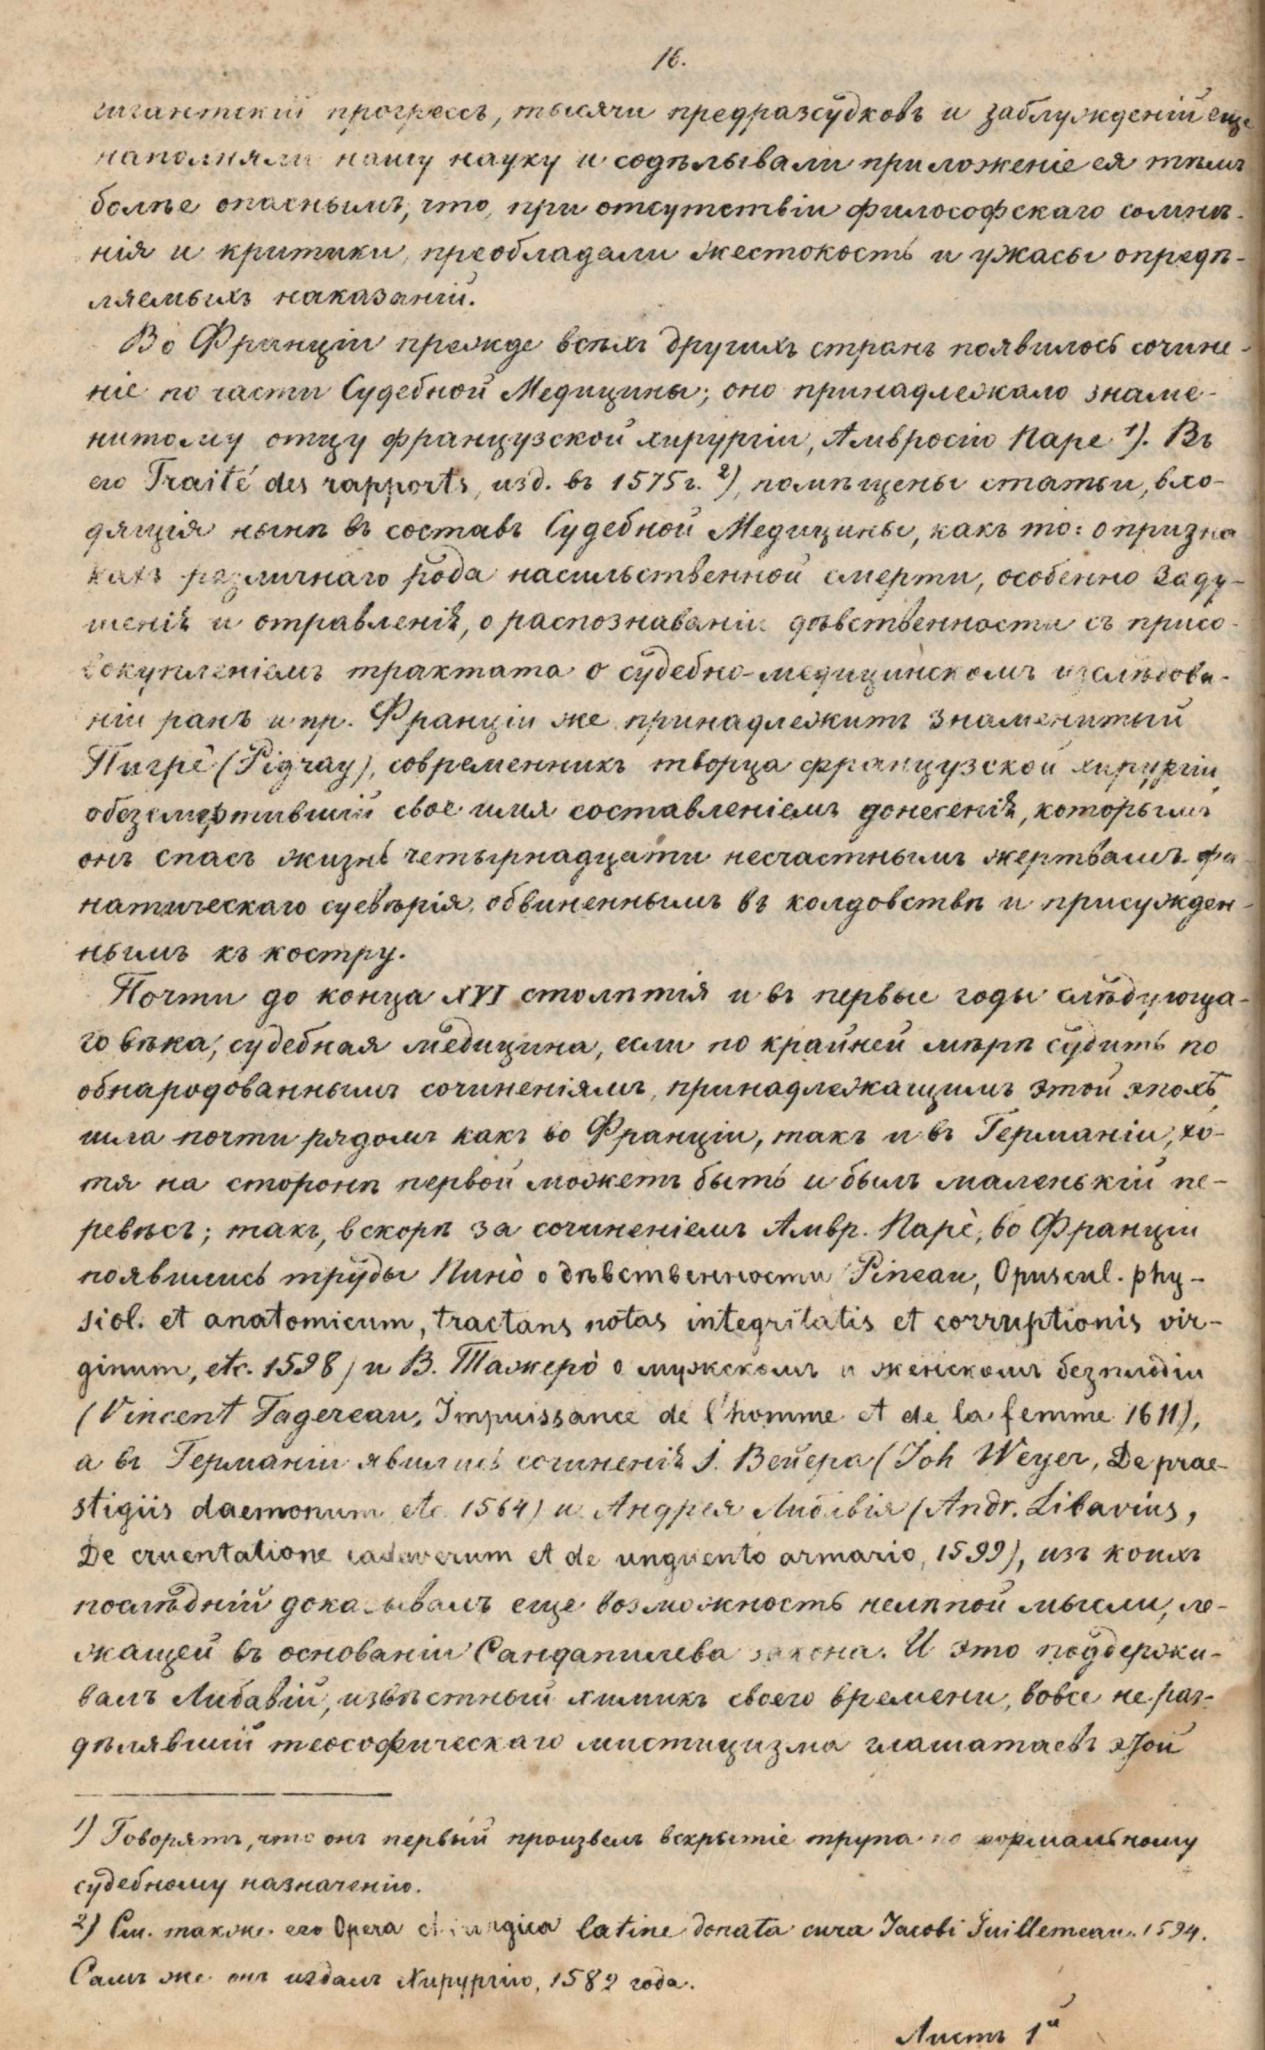 16.
гигантскій прогрессъ, тысячи предразсудковъ и заблужденій еще
наполняли нашу науку и содѣлывали приложеніе ея тѣмъ
болѣе опаснымъ, что, при отсутствіи философскаго сомнѣ-
нія и критики, преобладали жестокость и ужасы опредѣ-
ляемыхъ наказаній.
Во Франціи прежде всѣхъ другихъ странъ появилось сочине-
ніе по части Судебной Медицины; оно принадлежало знаме-
нитому отцу французской хирургіи, Амвросію Паре 1). Въ
его Traité des rapports, изд. въ 1575 г. 2), помѣщены статьи, вхо-
дящія нынѣ въ составъ Судебной Медицины, какъ то: о призна
кахъ различнаго рода насильственной смерти, особенно заду-
шенія и отравленія, о распознаваніи дѣвственности съ присо-
вокупленіемъ трактата о судебно-медицинскомъ изслѣдова-
ніи ранъ и пр. Франціи же принадлежитъ знаменитый
Пигрè (Pigray), современникъ творца французской хирургіи,
обезсмертившій свое имя составленіемъ донесенія, которымъ
онъ спасъ жизнь четырнадцати несчастнымъ жертвамъ фа-
натическаго суевѣрія, обвиненнымъ въ колдовствѣ и присужден-
нымъ къ костру.
Почти до конца XVI столѣтія и въ первые годы слѣдующа-
го вѣка, судебная медицина, если по крайней мѣрѣ судить по
обнародованнымъ сочиненіямъ, принадлежащимъ этой эпохѣ,
шла почти рядомъ какъ во Франціи, такъ и въ Германіи, хо-
тя на сторонѣ первой можетъ быть и былъ маленькій пе-
ревѣсъ; такъ, вскорѣ за сочиненіемъ Амвр. Парè, во Франціи
появились труды Пинò о дѣвственности Pineau, Opuscul. phy-
siol. et anatomicum, tractans notas integritatis et corruptionis vir-
ginum, etc. 1598) и В. Тажерò о мужскомъ и женскомъ безплодіи
(Vincent Tagereau, Impuissance de l'homme et de la femme 1611),
а въ Германіи явились сочиненія І. Вейера (Joh Weyer, De prae-
stigiis daemonum etc 1564) и Андрея Либавія (Andr. Libavius,
De cruentatione cadaverum et de unguento armario, 1599), изъ коихъ
послѣдній доказывалъ еще возможность нелѣпой мысли, ле-
жащей въ основаніи Сандапилева закона. И это поддержи-
валъ Либавій, извѣстный химикъ своего времени, вовсе не раз-
дѣлявшій теософическаго мистицизма глашатаевъ этой
1) Говорятъ, что онъ первый произвелъ вскрытіе трупа по формальному
судебному назначенію.
2) См. также его Opera chirurgica latine donata cura Jacobi Guillemeau. 1594.
Самъ же онъ издалъ Хирургію, 1582 года.
Листъ 1й